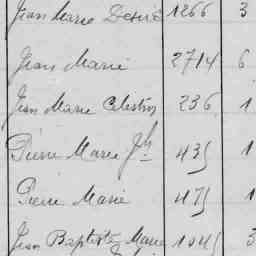 Jean Marie Désiré 1266 3
Jean Marie 2714 6
Jean Marie Célestin 236 1
Pierre Marie Jh 435 1
Pierre Marie 475 1
Jean Baptiste Marie 1045 3